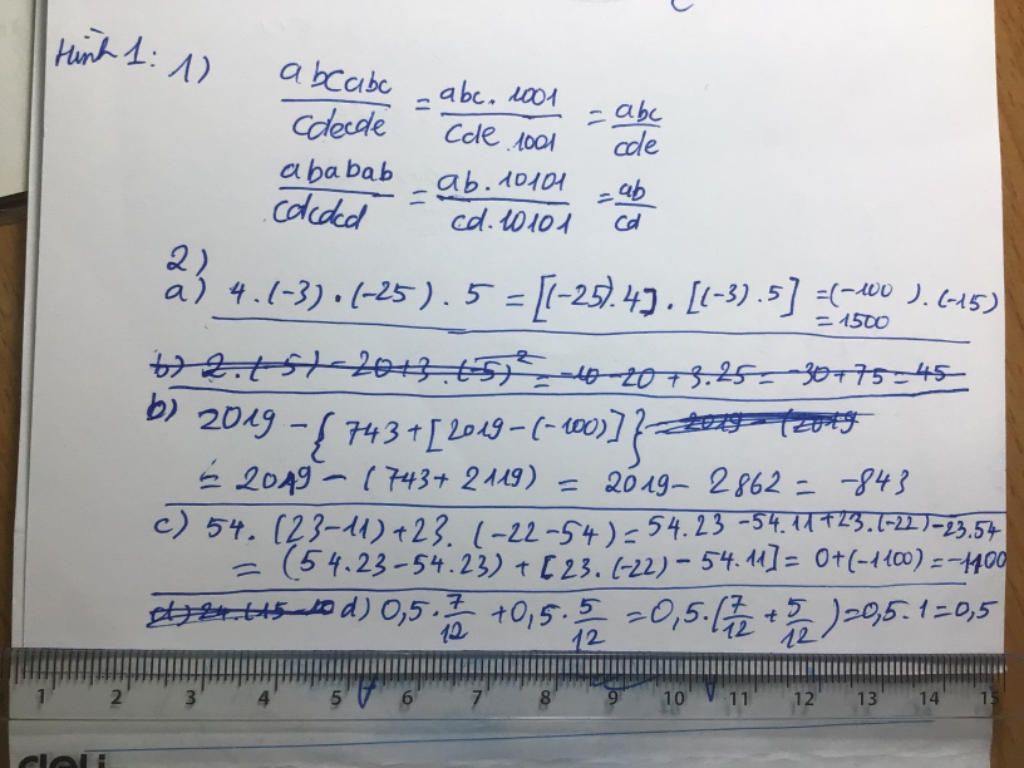 Hình 1: 1) abcabc/cdecde = abc.1001/cde.1001 = abc/cde
ababab/cdcdcd = ab.10101/cd.10101 = ab/cd
2)
a) 4.(-3).(-25).5 = [(-25).4].[(-3).5] = (-100).(-15)
= 1500
b) 2.(-5) - 20 + 3.(-5)² = -10 - 20 + 3.25 = -30 + 75 = 45
b) 2019 - {743 + [2019 - (-100)]} = 2019 - (2019
= 2019 - (743 + 2119) = 2019 - 2862 = -843
c) 54.(23-11) + 23.(-22-54) = 54.23 - 54.11 + 23.(-22) - 23.54
= (54.23 - 54.23) + [23.(-22) - 54.11] = 0 + (-1100) = -1100
d) 24.(15-10 d) 0,5.7/12 + 0,5.5/12 = 0,5.(7/12 + 5/12) = 0,5.1 = 0,5
1 2 3 4 5 6 7 8 9 10 11 12 13 14 15
deli